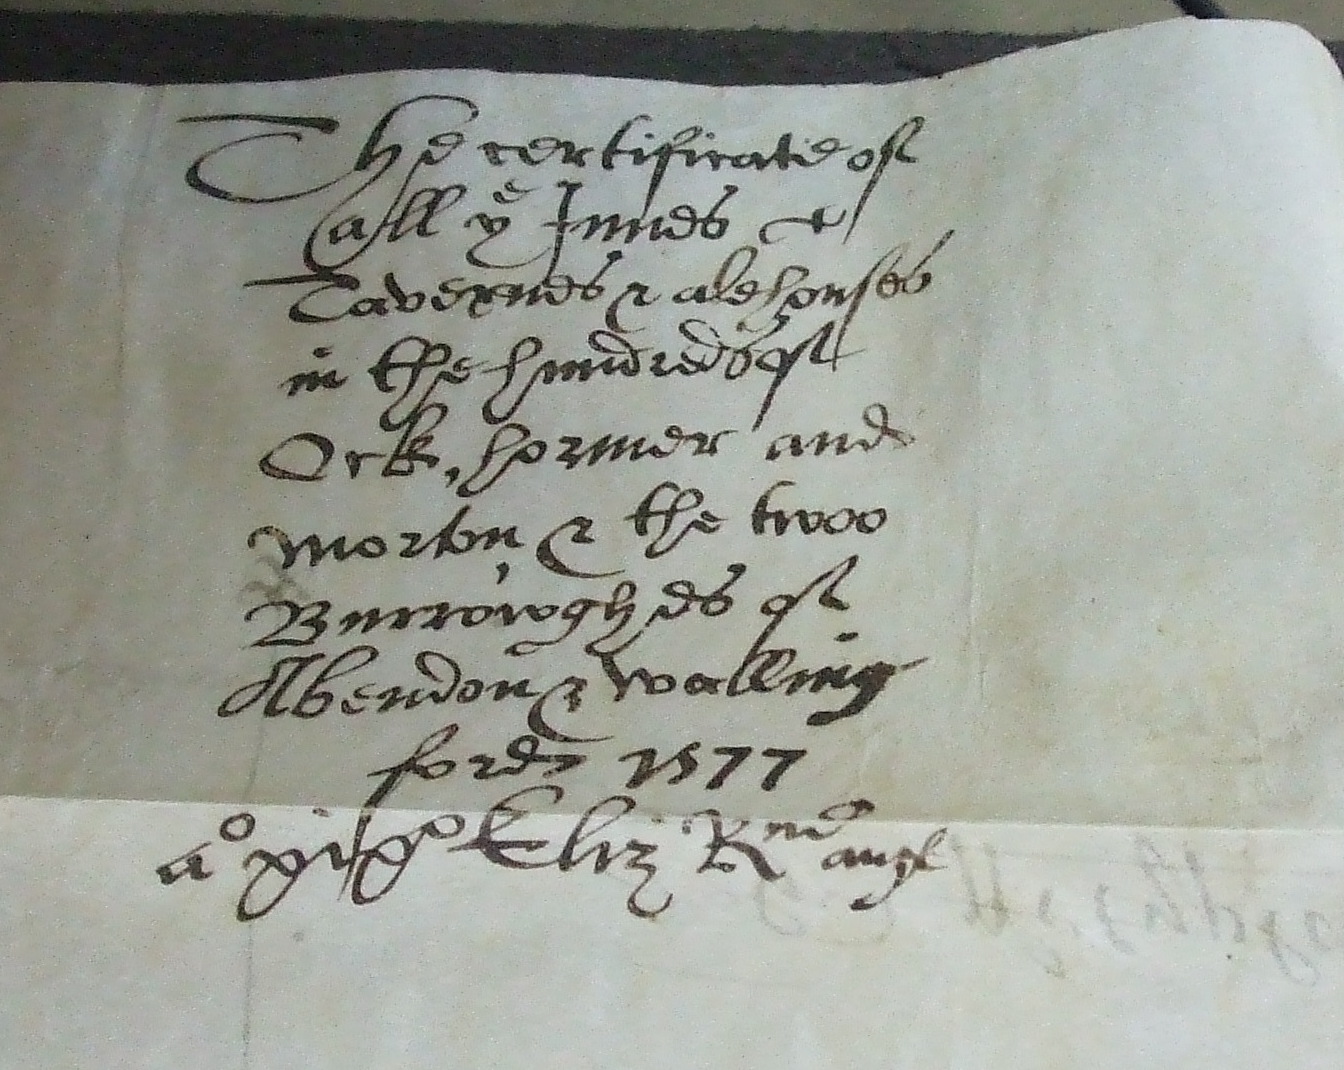 The certificate of
all yͤ Innes &
Tavernes & alehouses
in the hundredes of
Ock, hormer and
Morton, & the twoo
Burrowghes of
Abendon & walling
ford 1577
aº xixº Eliz R angl